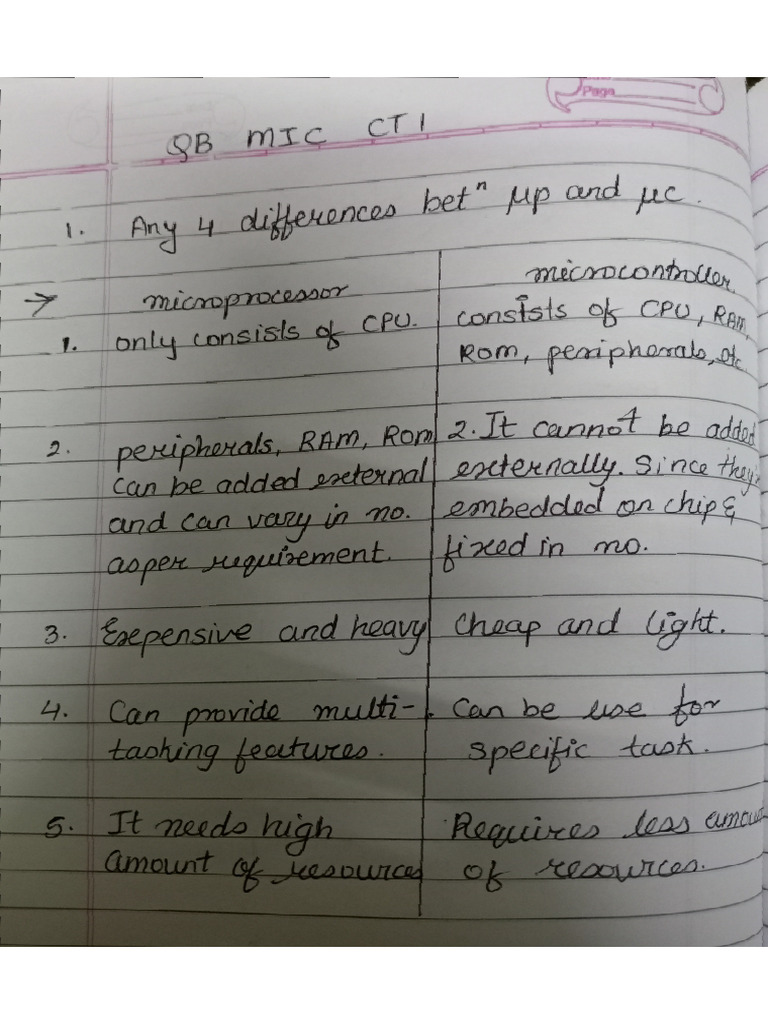 Page
QB MIC CT1
1. Any 4 differences betⁿ μp and μc.
→ microprocessor
microcontroller
1. only consists of CPU.
consists of CPU, RAM,
Rom, peripherals, etc.
2. peripherals, RAM, Rom
can be added external
and can vary in no.
asper requirement.
2. It cannot be added
externally. Since they're
embedded on chip &
fixed in no.
3. Expensive and heavy
Cheap and light.
4. Can provide multi-
tasking features.
Can be use for
specific task.
5. It needs high
amount of resources
Requires less amount
of resources.